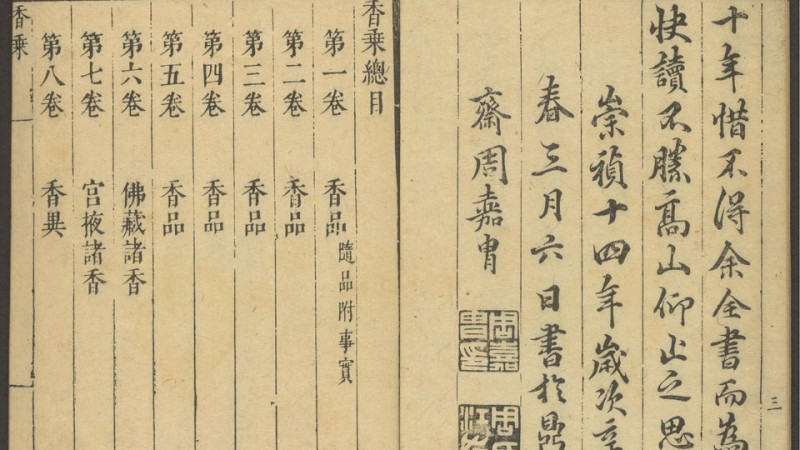 十年惜不得余全書而為
快讀不勝髙山仰止之思
崇禎十四年歲次辛
春三月六日書於鼎
齋周嘉胄
周嘉
胄印
三
香乗總目
第一卷 香品 隨品附事實
第二卷 香品
第三卷 香品
第四卷 香品
第五卷 香品
第六卷 佛藏諸香
第七卷 宫掖諸香
第八卷 香異
香乗